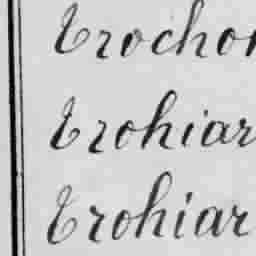 Trochon
Trohiar
Trohiar